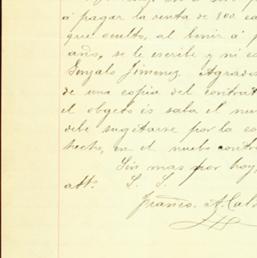 á pagar la renta de 800 ca
que oculto, al benir á p
año, se le escribe y ni co
Gonzalo Jimenez. Agrado
de una copia del contrat
el objeto is saba el nue
debe sugitarse por la co
hecho, en el nuebo contra
Sin mas por hoy,
att° S. S.
Franco. A. Cal